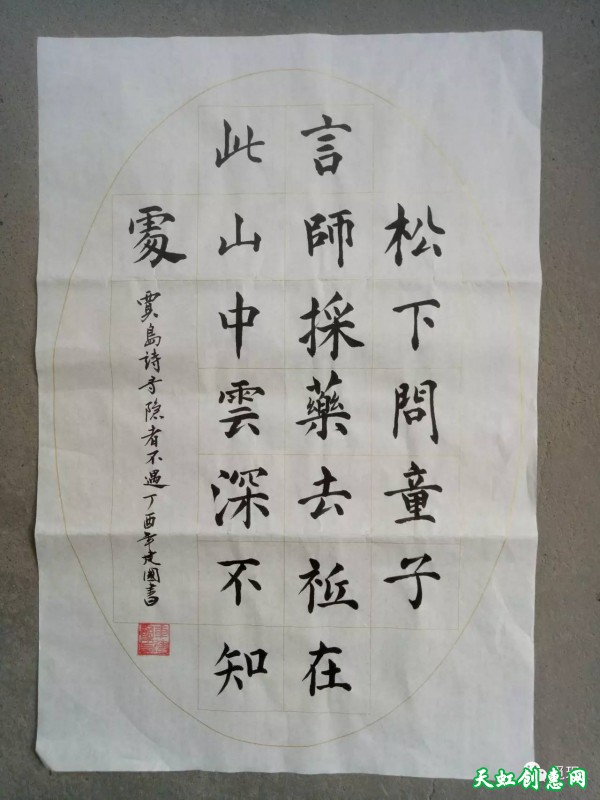 松下問童子
言師採藥去祗在
此山中雲深不知
處
賈島詩尋隐者不遇丁酉年建國書
天虹创惠网